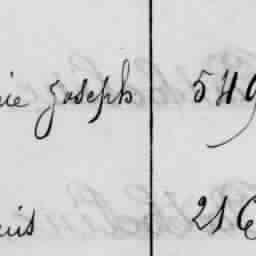 ie Joseph 549
uis 216